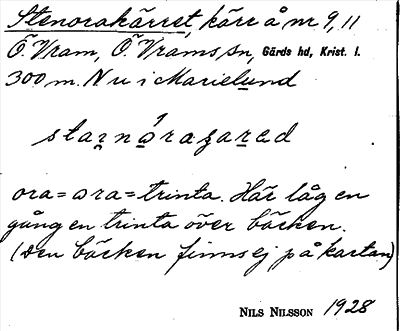 Stenorakärret, kärr å nr 9, 11
Ö. Vram, Ö. Vrams sn, Gärds hd, Krist. l.
300 m. N v i Marielund
ora = ora = trinta. Här låg en
gång en trinta över bäcken.
(Den bäcken finns ej på kartan)
NILS NILSSON 1928